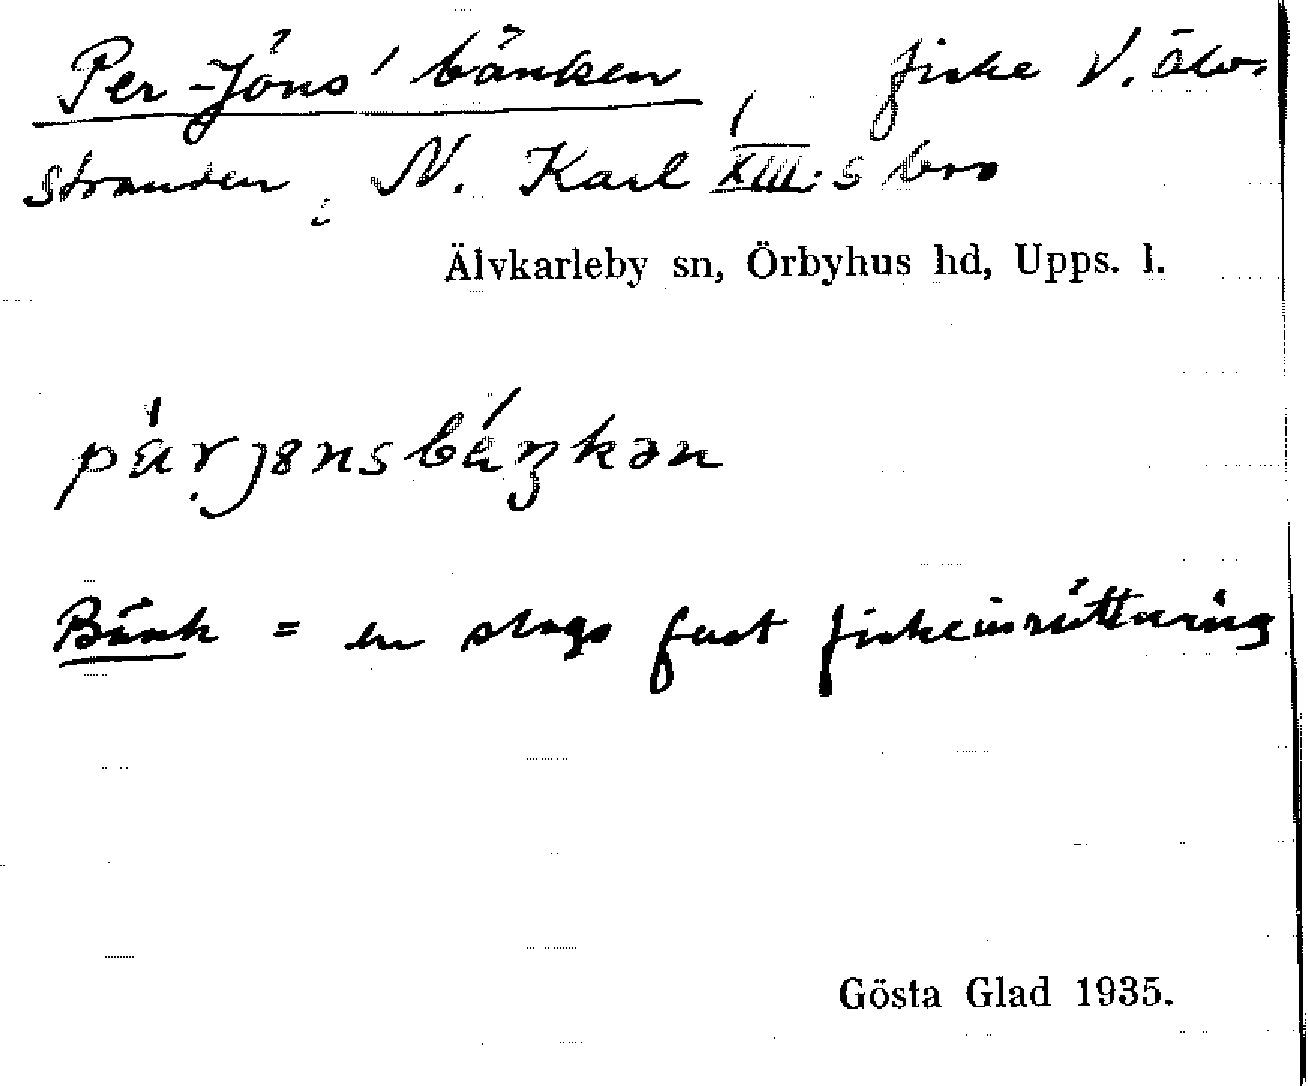 Per-Jöns' bänken, fiske V. älv-
stranden, N. Karl XIII:s bro
Älvkarleby sn, Örbyhus hd, Upps. l.
Bänk = en slags fast fiskeinrättning
Gösta Glad 1935.